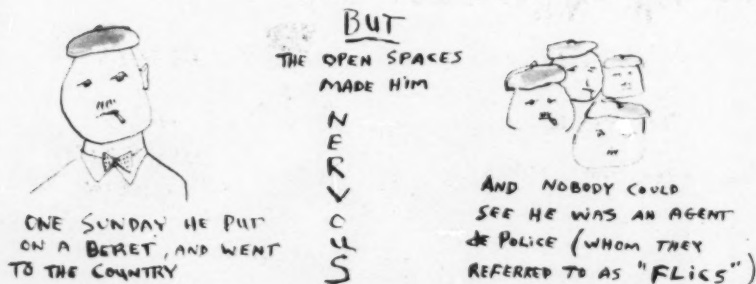 ONE SUNDAY HE PUT
ON A BERET, AND WENT
TO THE COUNTRY
BUT
THE OPEN SPACES
MADE HIM
N
E
R
V
O
U
S
AND NOBODY COULD
SEE HE WAS AN AGENT
de POLICE (WHOM THEY
REFERRED TO AS "FLICS")